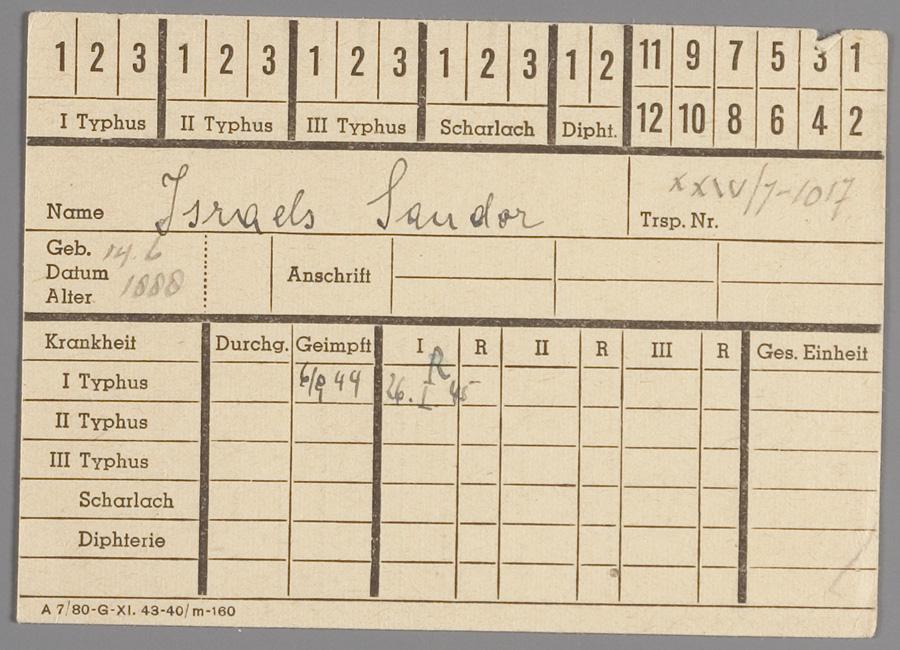 1 2 3 1 2 3 1 2 3 1 2 3 1 2 11 9 7 5 3 1
I Typhus II Typhus III Typhus Scharlach Dipht. 12 10 8 6 4 2
Name Israels Sandor Trsp. Nr. XXIV/7-1017
Geb. 14.6
Datum 1888 Anschrift
Alter
Krankheit Durchg. Geimpft I R II R III R Ges. Einheit
R
I Typhus 6/9 44 26. I 45
II Typhus
III Typhus
Scharlach
Diphterie
A 7/80-G-XI. 43-40/m-160